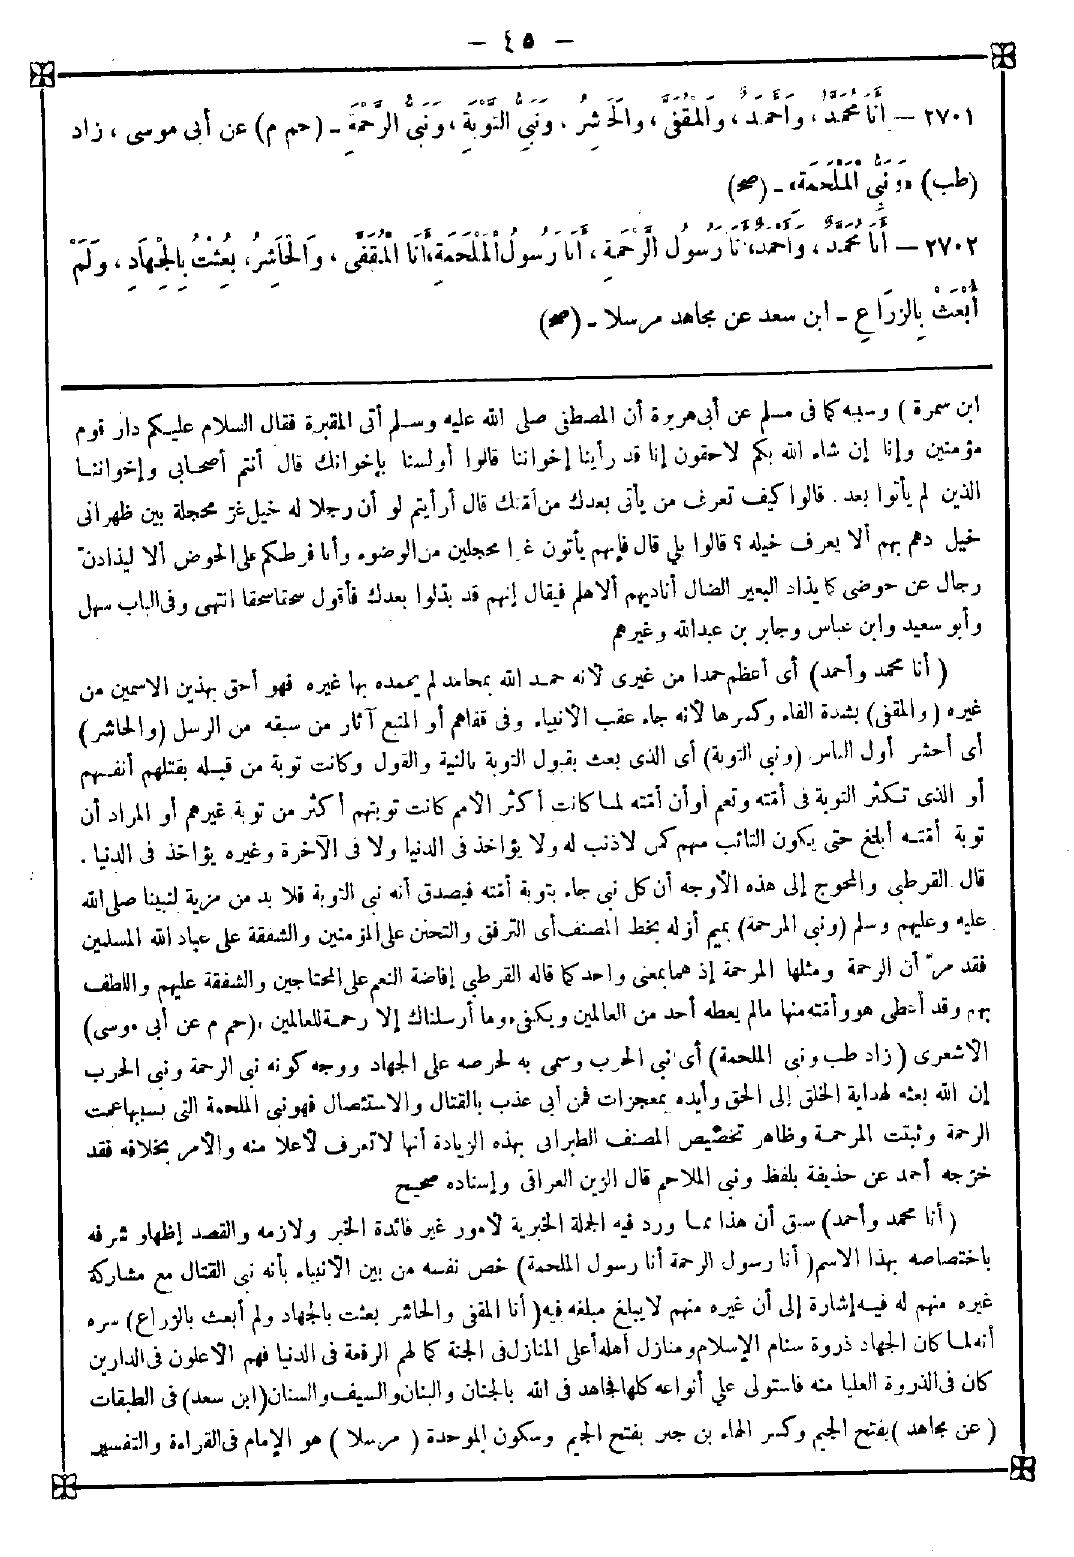 — ٤٥ —
٢٧٠١ — أَنَا مُحَمَّدٌ، وَأَحْمَدُ، وَالْمُقَفَّى، وَالْحَاشِرُ، وَنَبِيُّ التَّوْبَةِ، وَنَبِيُّ الرَّحْمَةِ - (حم م) عن أبى موسى، زاد
(طب) «وَنَبِىُّ الْمَلْحَمَةِ» - (صح)
٢٧٠٢ — أَنَا مُحَمَّدٌ، وَأَحْمَدُ، أَنَا رَسُولُ الرَّحْمَةِ، أَنَا رَسُولُ الْمَلْحَمَةِ، أَنَا الْمُقَفَّى، وَالْحَاشِرُ، بُعِثْتُ بِالْجِهَادِ، وَلَمْ
أُبْعَثْ بِالزِّرَاعِ - ابن سعد عن مجاهد مرسلا - (صح)
ابن سمرة) وسببه كما فى مسلم عن أبى هريرة أن المصطفى صلى الله عليه وسلم أتى المقبرة فقال السلام عليكم دار قوم
مؤمنين وإنا إن شاء الله بكم لاحقون إنا قد رأينا إخواننا قالوا أولسنا بإخوانك قال أنتم أصحابى وإخواننا
الذين لم يأتوا بعد. قالوا كيف تعرف من يأتى بعدك من أمّتك قال أرأيتم لو أن رجلا له خيل غرّ محجلة بين ظهرانى
خيل دهم بهم ألا يعرف خيله؟ قالوا بلى قال فإنهم يأتون غرا محجلين من الوضوء وأنا فرطكم على الحوض ألا ليذادنّ
رجال عن حوضى كما يذاد البعير الضال أناديهم ألا هلم فيقال إنهم قد بدّلوا بعدك فأقول سحقا سحقا انتهى وفى الباب سهل
وأبو سعيد وابن عباس وجابر بن عبد الله وغيرهم
(أنا محمد وأحمد) أى أعظم حمدا من غيرى لأنه حمد الله بمحامد لم يحمده بها غيره فهو أحق بهذين الاسمين من
غيره (والمقفى) بشدة الفاء وكسرها لأنه جاء عقب الأنبياء وفى قفاهم أو المتبع آثار من سبقه من الرسل (والحاشر)
أى أحشر أول الناس (ونبى التوبة) أى الذى بعث بقبول التوبة بالنية والقول وكانت توبة من قبله بقتلهم أنفسهم
أو الذى تكثر التوبة فى أمّته وتعم أو أن أمّته لما كانت أكثر الأمم كانت توبتهم أكثر من توبة غيرهم أو المراد أن
توبة أمّته أبلغ حتى يكون التائب منهم كمن لا ذنب له ولا يؤاخذ فى الدنيا ولا فى الآخرة وغيره يؤاخذ فى الدنيا.
قال القرطبى والمحوج إلى هذه الأوجه أن كل نبى جاء بتوبة أمّته فيصدق أنه نبى التوبة فلا بد من مزية لنبينا صلى الله
عليه وعليهم وسلم (ونبى المرحمة) بميم أوّله بخط المصنف أى الترفق والتحنن على المؤمنين والشفقة على عباد الله المسلمين
فقد مرّ أن الرحمة ومثلها المرحمة إذ هما بمعنى واحد كما قاله القرطبى إفاضة النعم على المحتاجين والشفقة عليهم واللطف
بهم وقد أعطى هو وأمّته منها مالم يعطه أحد من العالمين ويكفى «وما أرسلناك إلا رحمة للعالمين» (حم م عن أبى موسى)
الأشعرى (زاد طب ونبى الملحمة) أى نبى الحرب وسمى به لحرصه على الجهاد ووجه كونه نبى الرحمة ونبى الحرب
إن الله بعثه لهداية الخلق إلى الحق وأيده بمعجزات فمن أبى عذب بالقتال والاستئصال فهو نبى الملحمة التى بسببها عمت
الرحمة وثبتت المرحمة وظاهر تخصيص المصنف الطبرانى بهذه الزيادة أنها لا تعرف لأعلا منه والأمر بخلافه فقد
خرّجه أحمد عن حذيفة بلفظ ونبى الملاحم قال الزين العراقى وإسناده صحيح
(أنا محمد وأحمد) سبق أن هذا مما ورد فيه الجملة الخبرية لأمور غير فائدة الخبر ولازمه والقصد إظهار شرفه
باختصاصه بهذا الاسم (أنا رسول الرحمة أنا رسول الملحمة) خص نفسه من بين الأنبياء بأنه نبى القتال مع مشاركة
غيره منهم له فيه إشارة إلى أن غيره منهم لا يبلغ مبلغه فيه (أنا المقفى والحاشر بعثت بالجهاد ولم أبعث بالزراع) سره
أنه لما كان الجهاد ذروة سنام الإسلام ومنازل أهله أعلى المنازل فى الجنة كما لهم الرفعة فى الدنيا فهم الأعلون فى الدارين
كان فى الذروة العليا منه فاستولى على أنواعه كلها فجاهد فى الله بالجنان والبنان والسيف والسنان (ابن سعد) فى الطبقات
(عن مجاهد) بفتح الجيم وكسر الهاء بن جبر بفتح الجيم وسكون الموحدة (مرسلا) هو الإمام فى القراءة والتفسير